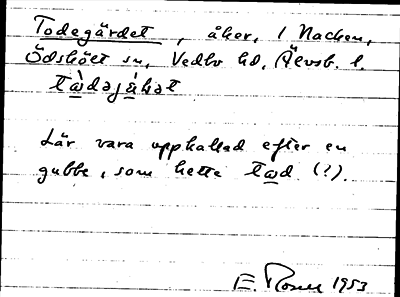 Todegärdet, åker, i Nacken,
Ödskölt sn, Vedbo hd, Älvsb. l.
Lär vara uppkallad efter en
gubbe, som hette tωd (?).
E. Rosell 1953